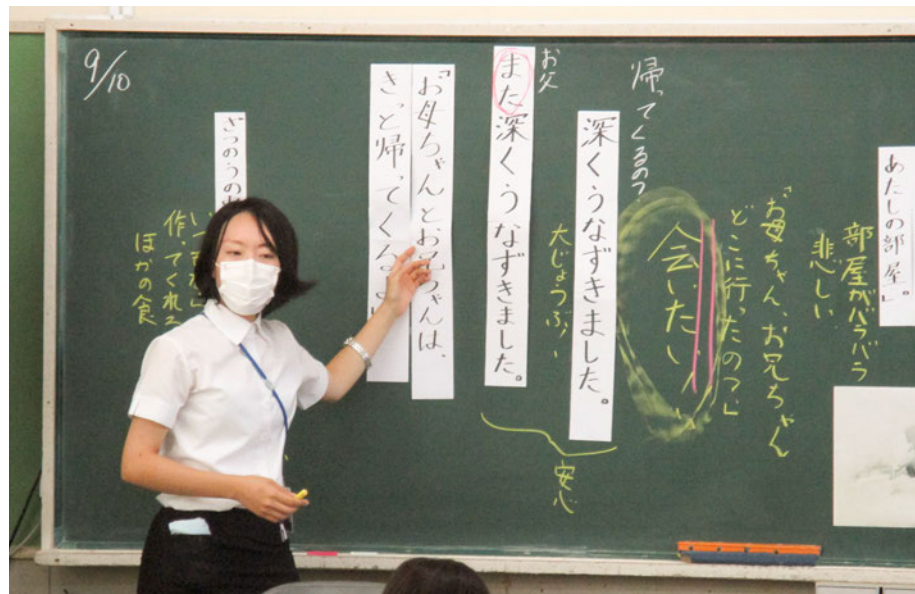 あたしの部屋」。
部屋がバラバラ
悲しい
「お母ちゃん、お兄ちゃん
どこに行ったの？」
会いたい
帰ってくるの？
深くうなずきました。
大じょうぶ
安心
お父
また深くうなずきました。
「お母ちゃんとお兄ちゃんは、
きっと帰ってくる
ざつのうの
作ってくれ
ほかの食
9/10